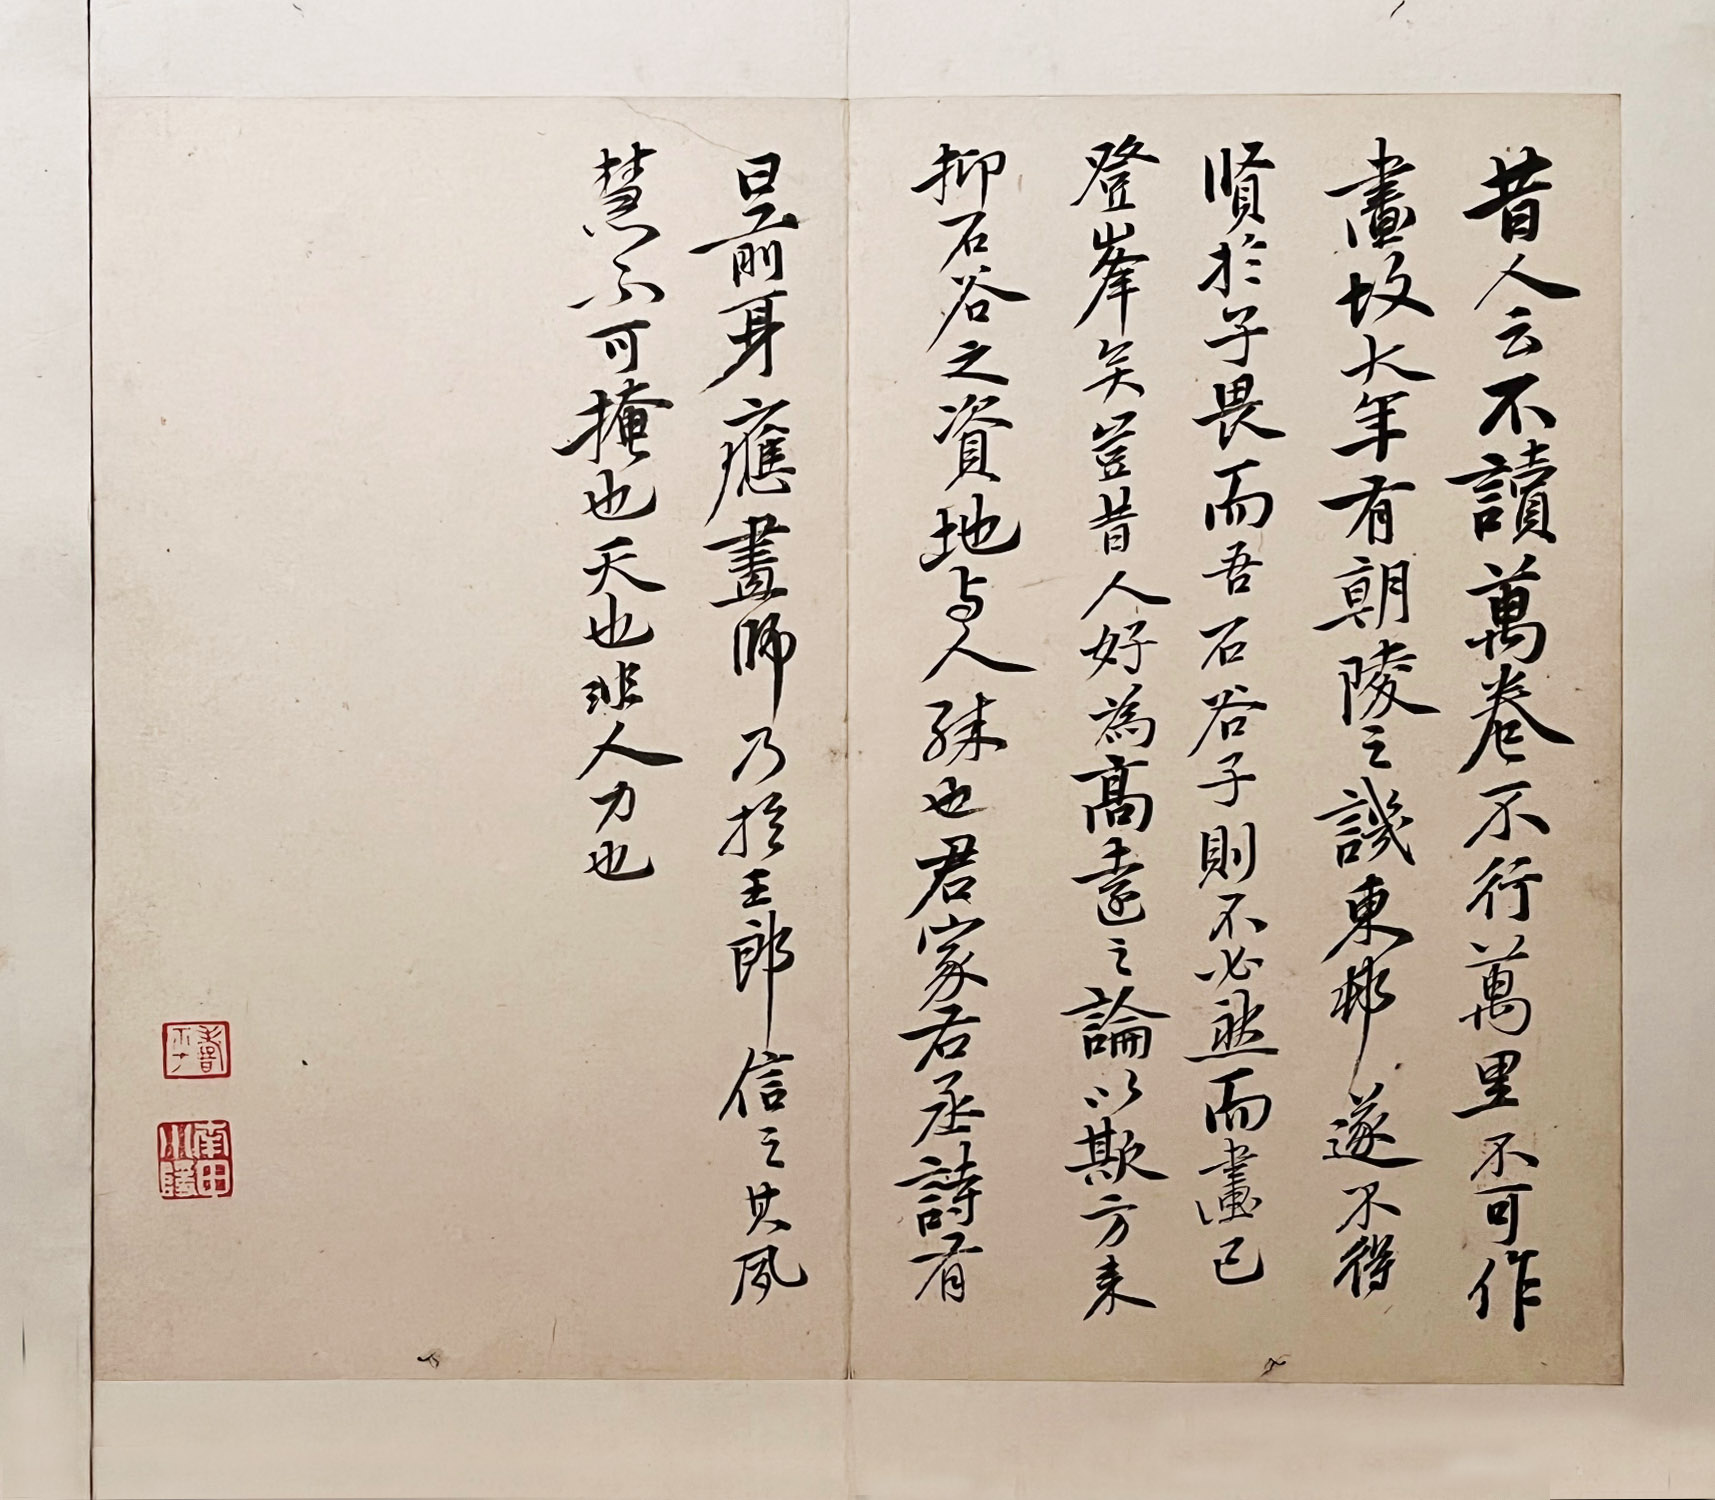 昔人云不讀萬卷不行萬里不可作
畫故大年有朝陵之譏東邨遂不得
賢於子畏而吾石谷子則不必然而畫已
登峯矣豈昔人好為高遠之論以欺方来
抑石谷之資地与人殊也君家右丞詩有
是前身應畫師乃於王郎信之其夙
慧不可掩也天也非人力也
壽平
南田小隱